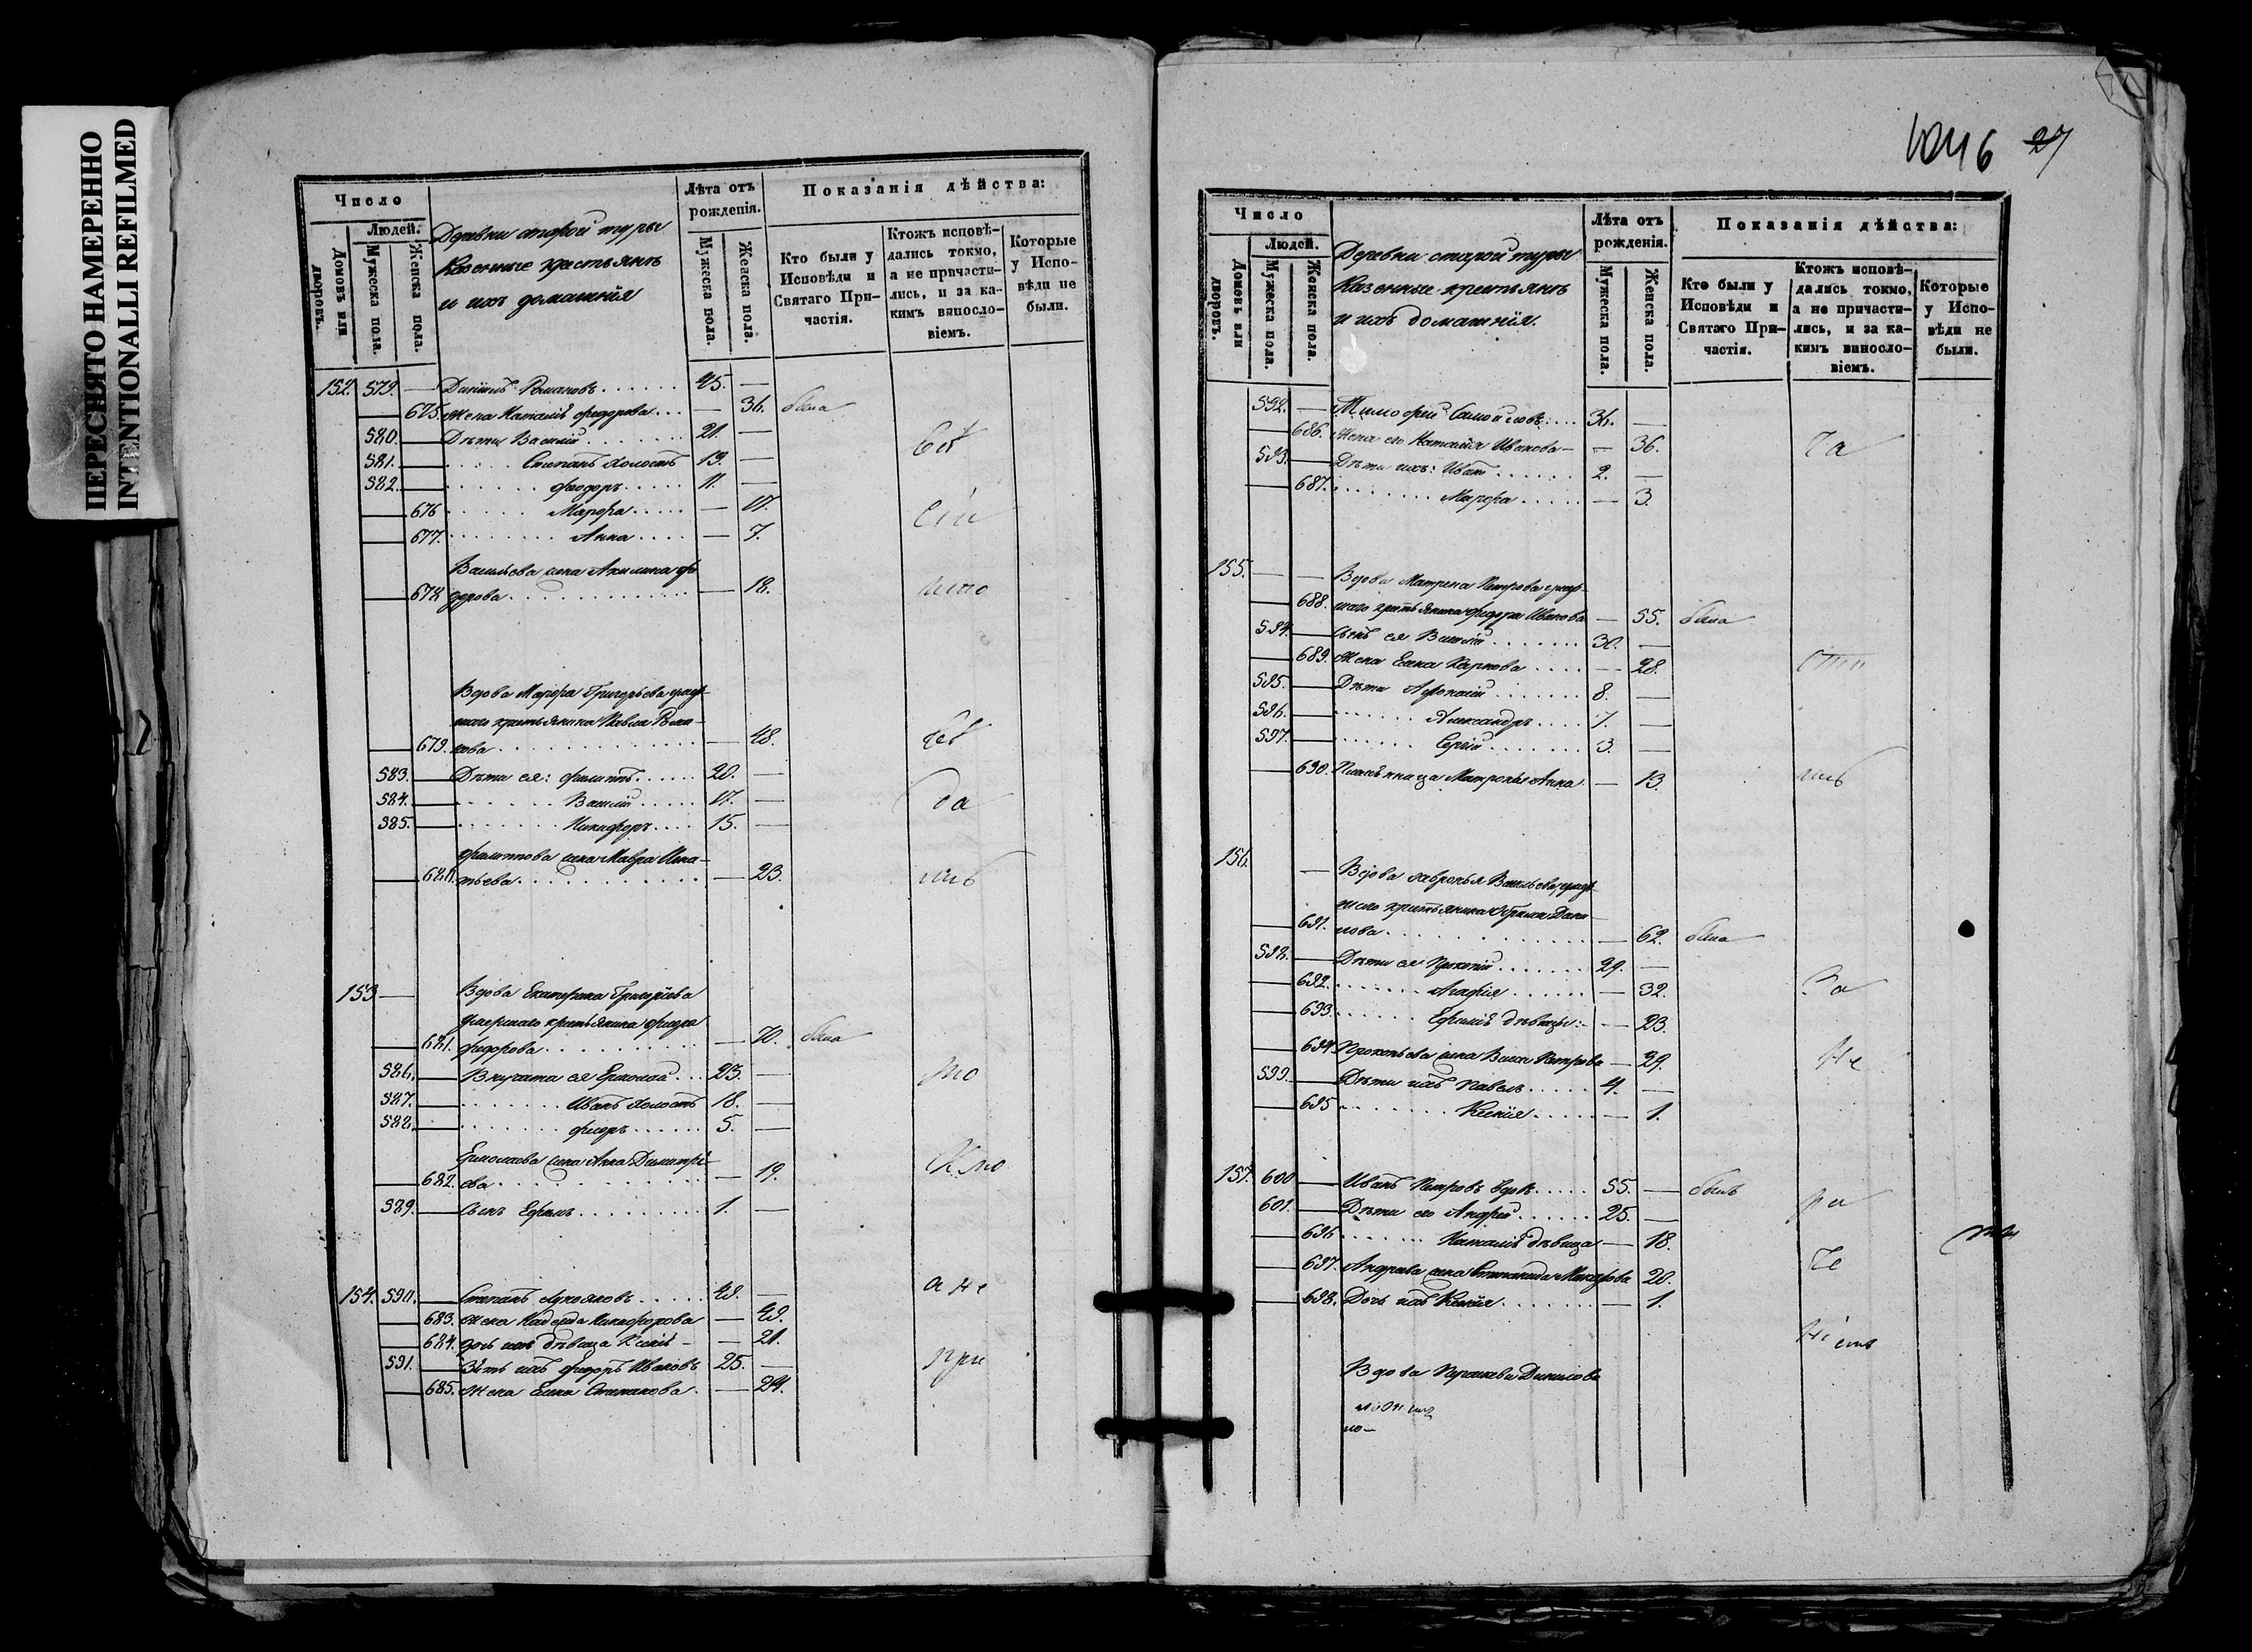 ПЕРЕСНЯТО НАМЕРЕННО
INTENTIONALLI REFILMED
Число
Людей.
Домовъ или дворовъ.
Мужеска пола.
Женска пола.
Деревни старой турье
Казенные крестьянъ
и ихъ домашнія
Лѣта отъ рожденія.
Мужеска пола.
Женска пола.
Показанія дѣйства:
Кто были у Исповѣди и Святаго Причастія.
Ктожъ исповѣдались токмо, а не причастились, и за какимъ винословіемъ.
Которые у Исповѣди не были.
152. 579. — Даниилъ Романовъ 45. —
— 675. Жена Наталія Федорова — 36. была
580. — Дѣти Василій 21. —
581. — Степанъ холостъ 19. —
582. — Феодоръ 11. —
— 676 Марфа — 17.
— 677. Анна — 7.
Васильева жена Акилина Фе
— 678 дорова — 18.
Вдова Марфа Григорьева умер
шаго крестьянина Павла Рома-
— 679. нова — 48.
583. — Дѣти ея: Филиппъ 20. —
584. — Василій 17. —
585. — Никифоръ 15. —
Филиппова жена Мавра Игна-
— 680. тьева — 23.
153 — Вдова Екатерина Григорьева
умершаго крестьянина Федора
— 681. Федорова — 70. была
586. — Внучата ея Ермолай 23. —
587. — Иванъ холостъ 18. —
588. — Федоръ 5. —
Ермолаева жена Анна Димитрі-
— 682. ева — 19.
589. — Сынъ Ефимъ 1. —
154. 590. — Степанъ Лукояновъ 49. —
— 683. Жена Надежда Никифорова — 49.
— 684. дочь ихъ дѣвица — 21.
591. — Зять ихъ Федоръ Ивановъ 25. —
— 685. Жена Елена Степанова — 24.
1046 27
Число
Людей.
Домовъ или дворовъ.
Мужеска пола.
Женска пола.
Деревни старой турье
Казенные крестьянъ
и ихъ домашнія.
Лѣта отъ рожденія.
Мужеска пола.
Женска пола.
Показанія дѣйства:
Кто были у Исповѣди и Святаго Причастія.
Ктожъ исповѣдались токмо, а не причастились, и за какимъ винословіемъ.
Которые у Исповѣди не были.
592. — Тимофей Самойловъ 36. —
— 686. Жена его Наталія Иванова — 36.
593. — Дѣти ихъ: Иванъ 2. —
— 687. Марфа — 3.
155. — — Вдова Матрена Петрова умер-
— 688. шаго крестьянина Федора Иванова — 55. была
594. — Сынъ ея Василій 30. —
— 689. Жена Елена Карпова — 28.
595. — Дѣти Афонасій 8. —
596. — Александръ 7. —
597. — Сергій 3. —
— 690. Племянница Матроны Анна — 13.
156. — Вдова Февронья Васильева, умер-
шаго крестьянина Ефима Дани-
— 691. лова — 62. была
598. — Дѣти ея Прокопій 29. —
— 692. Агафія — 32.
— 693. Ефимія дѣвицы: — 23.
— 694 Прокопьева жена Васса Петрова — 29.
599. — Дѣти ихъ Павелъ 4. —
— 695 Ксенія — 1.
157. 600 — Иванъ Петровъ вдовъ 55. — былъ
601. — Дѣти его Андрей 25. —
— 696 Наталія дѣвица — 18.
— 697. Андреева жена Степанида Макарова 20.
— 698. Дочь ихъ Ксенія — 1.
Вдова Прасковья Данилова